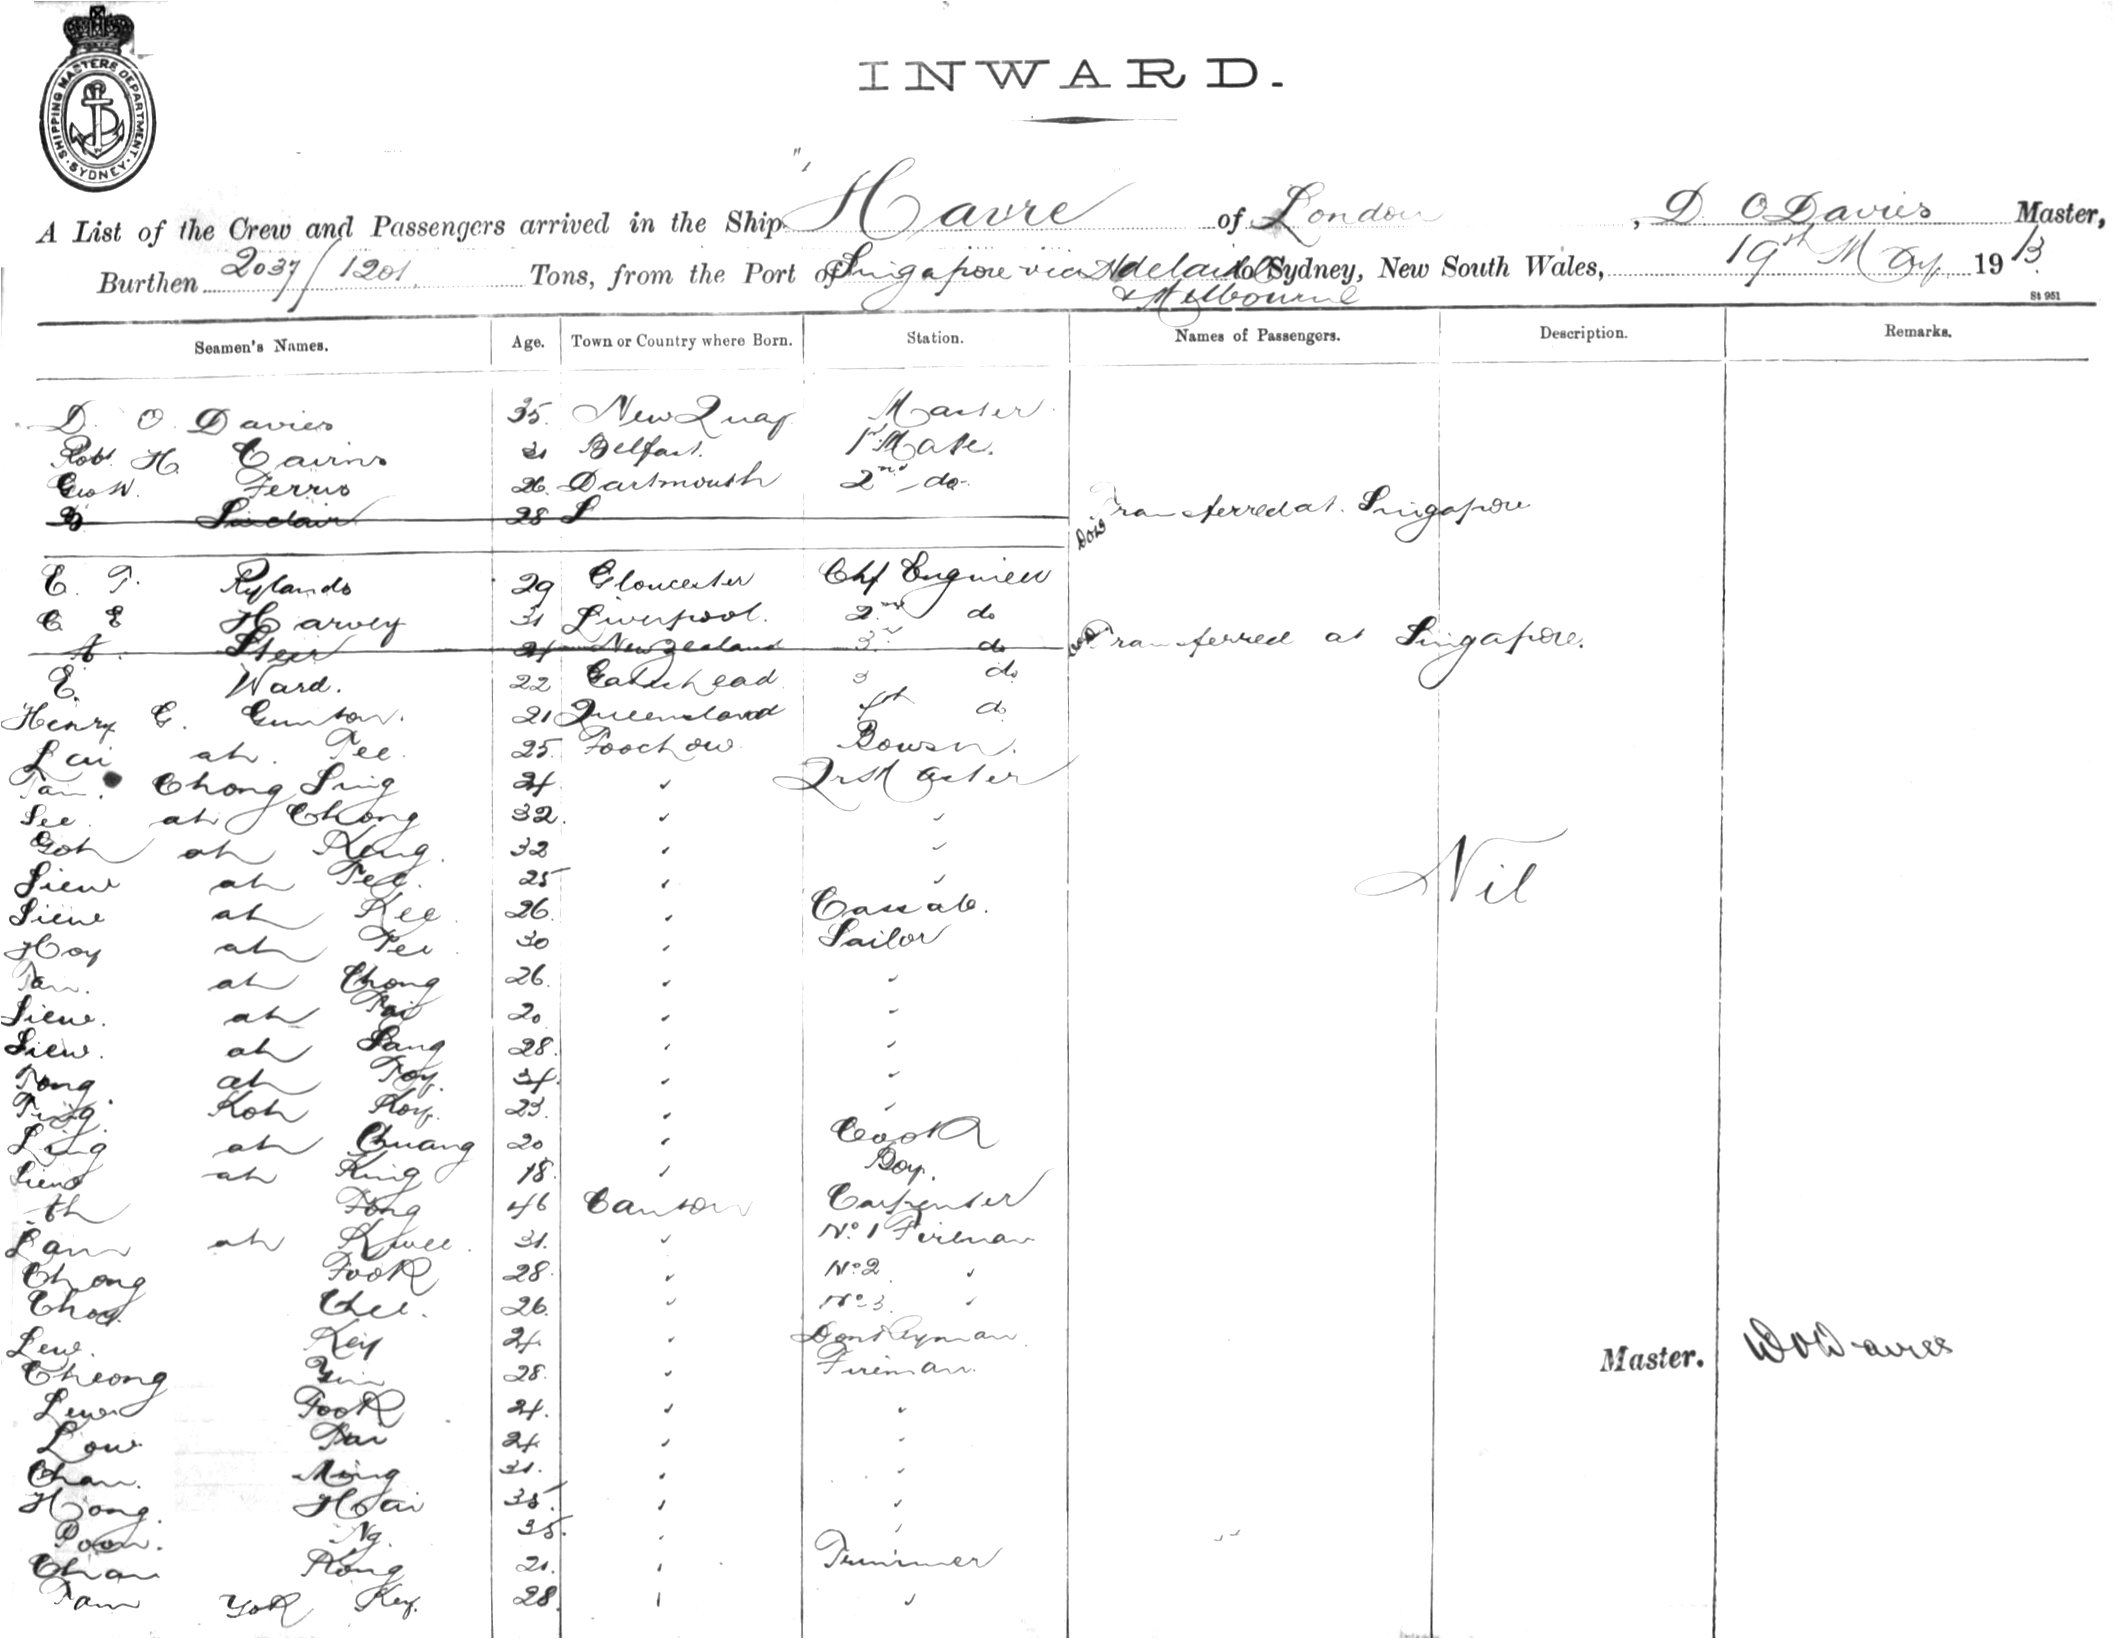 SHIPPING MASTERS DEPARTMENT. SYDNEY.
INWARD.
A List of the Crew and Passengers arrived in the Ship Havre of London, D. O Davies Master,
Burthen 2037/1201 Tons, from the Port of Singapore via Adelaide to Sydney, New South Wales, 19th May 1913.
& Melbourne
St 951
Seamen's Names. Age. Town or Country where Born. Station. Names of Passengers. Description. Remarks.
D. O. Davies 35. New Quay Master
Robt. H. Cairns 31 Belfast. 1st Mate.
Geo W. Ferris 26. Dartmouth 2nd do.
Sinclair 28 S Transferred at Singapore
DOD
E. T. Rylands 29 Gloucester Chf Engineer
C. E Harvey 31 Liverpool. 2nd do
A. Steer 24 New Zealand 3rd do DOD Transferred at Singapore.
E. Ward. 22 Gateshead 3 do
Henry G. Gunton. 21 Queensland 4th do
Lai ah. Tee. 25. Foochow Bowsn.
Tan. Chong Sing 24 " Qr Master
See. ah Chong 32. " "
Goh ah Keng. 32 " "
Siew ah Tee. 25 " "
Siew ah Kee 26. " Cassab.
Hoy ah Pee 30 " Sailor
Tan. ah Chong 26. " "
Siew. ah Tai 20 " "
Siew. ah Sang 28. " "
Tong. ah Toy. 34. " "
Ting. Koh Koy. 23. " "
Ling ah Chuang 20 " Cook
Siew ah King 18. " Boy.
Ah Fong 46 Canton Carpenter
Lam ah Kwee. 31. " No. 1 Fireman
Chong Fook 28. " No 2 "
Choy. Chee. 26. " No 3. "
Lew. Key 24. " Donkeyman
Cheong Yin 28. " Fireman.
Lew Fook 24. " "
Low Tai 24. " "
Chan. Ming 31. " "
Hong. Hai 35. " "
Poon. Ng. 35. " "
Chan Kong 21. " Trimmer
Tam Yok Key. 28. " "
Nil
Master. D O Davies